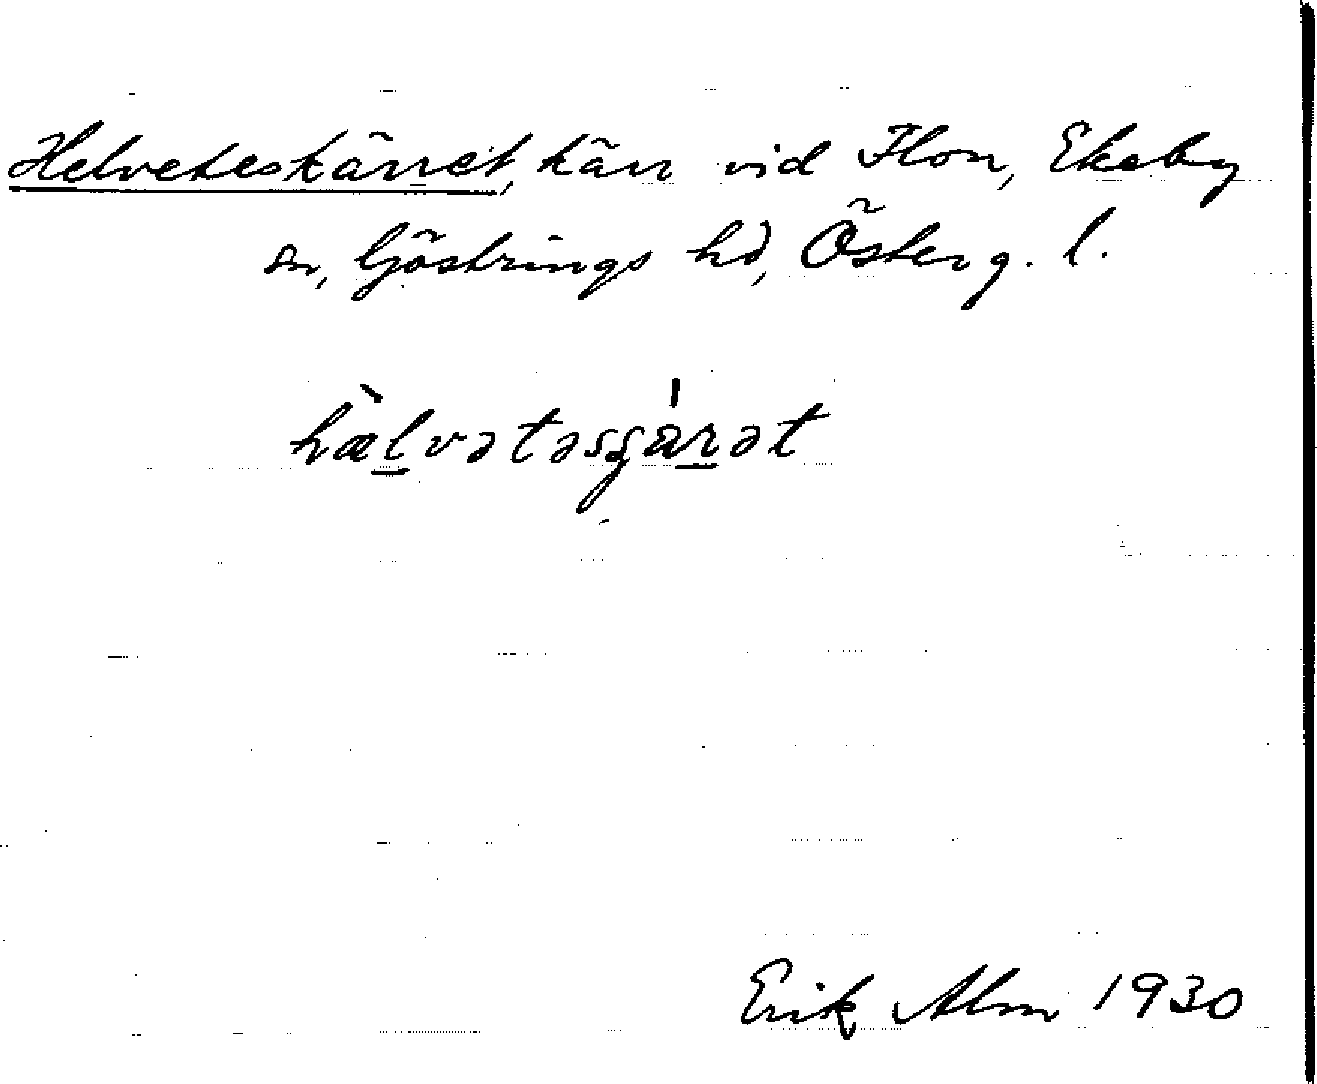 Helveteskärret, kärr vid Flon, Ekeby
sn, Göstrings hd, Österg. l.
hæ̀lvətəsʂa̍rət
Erik Alm 1930